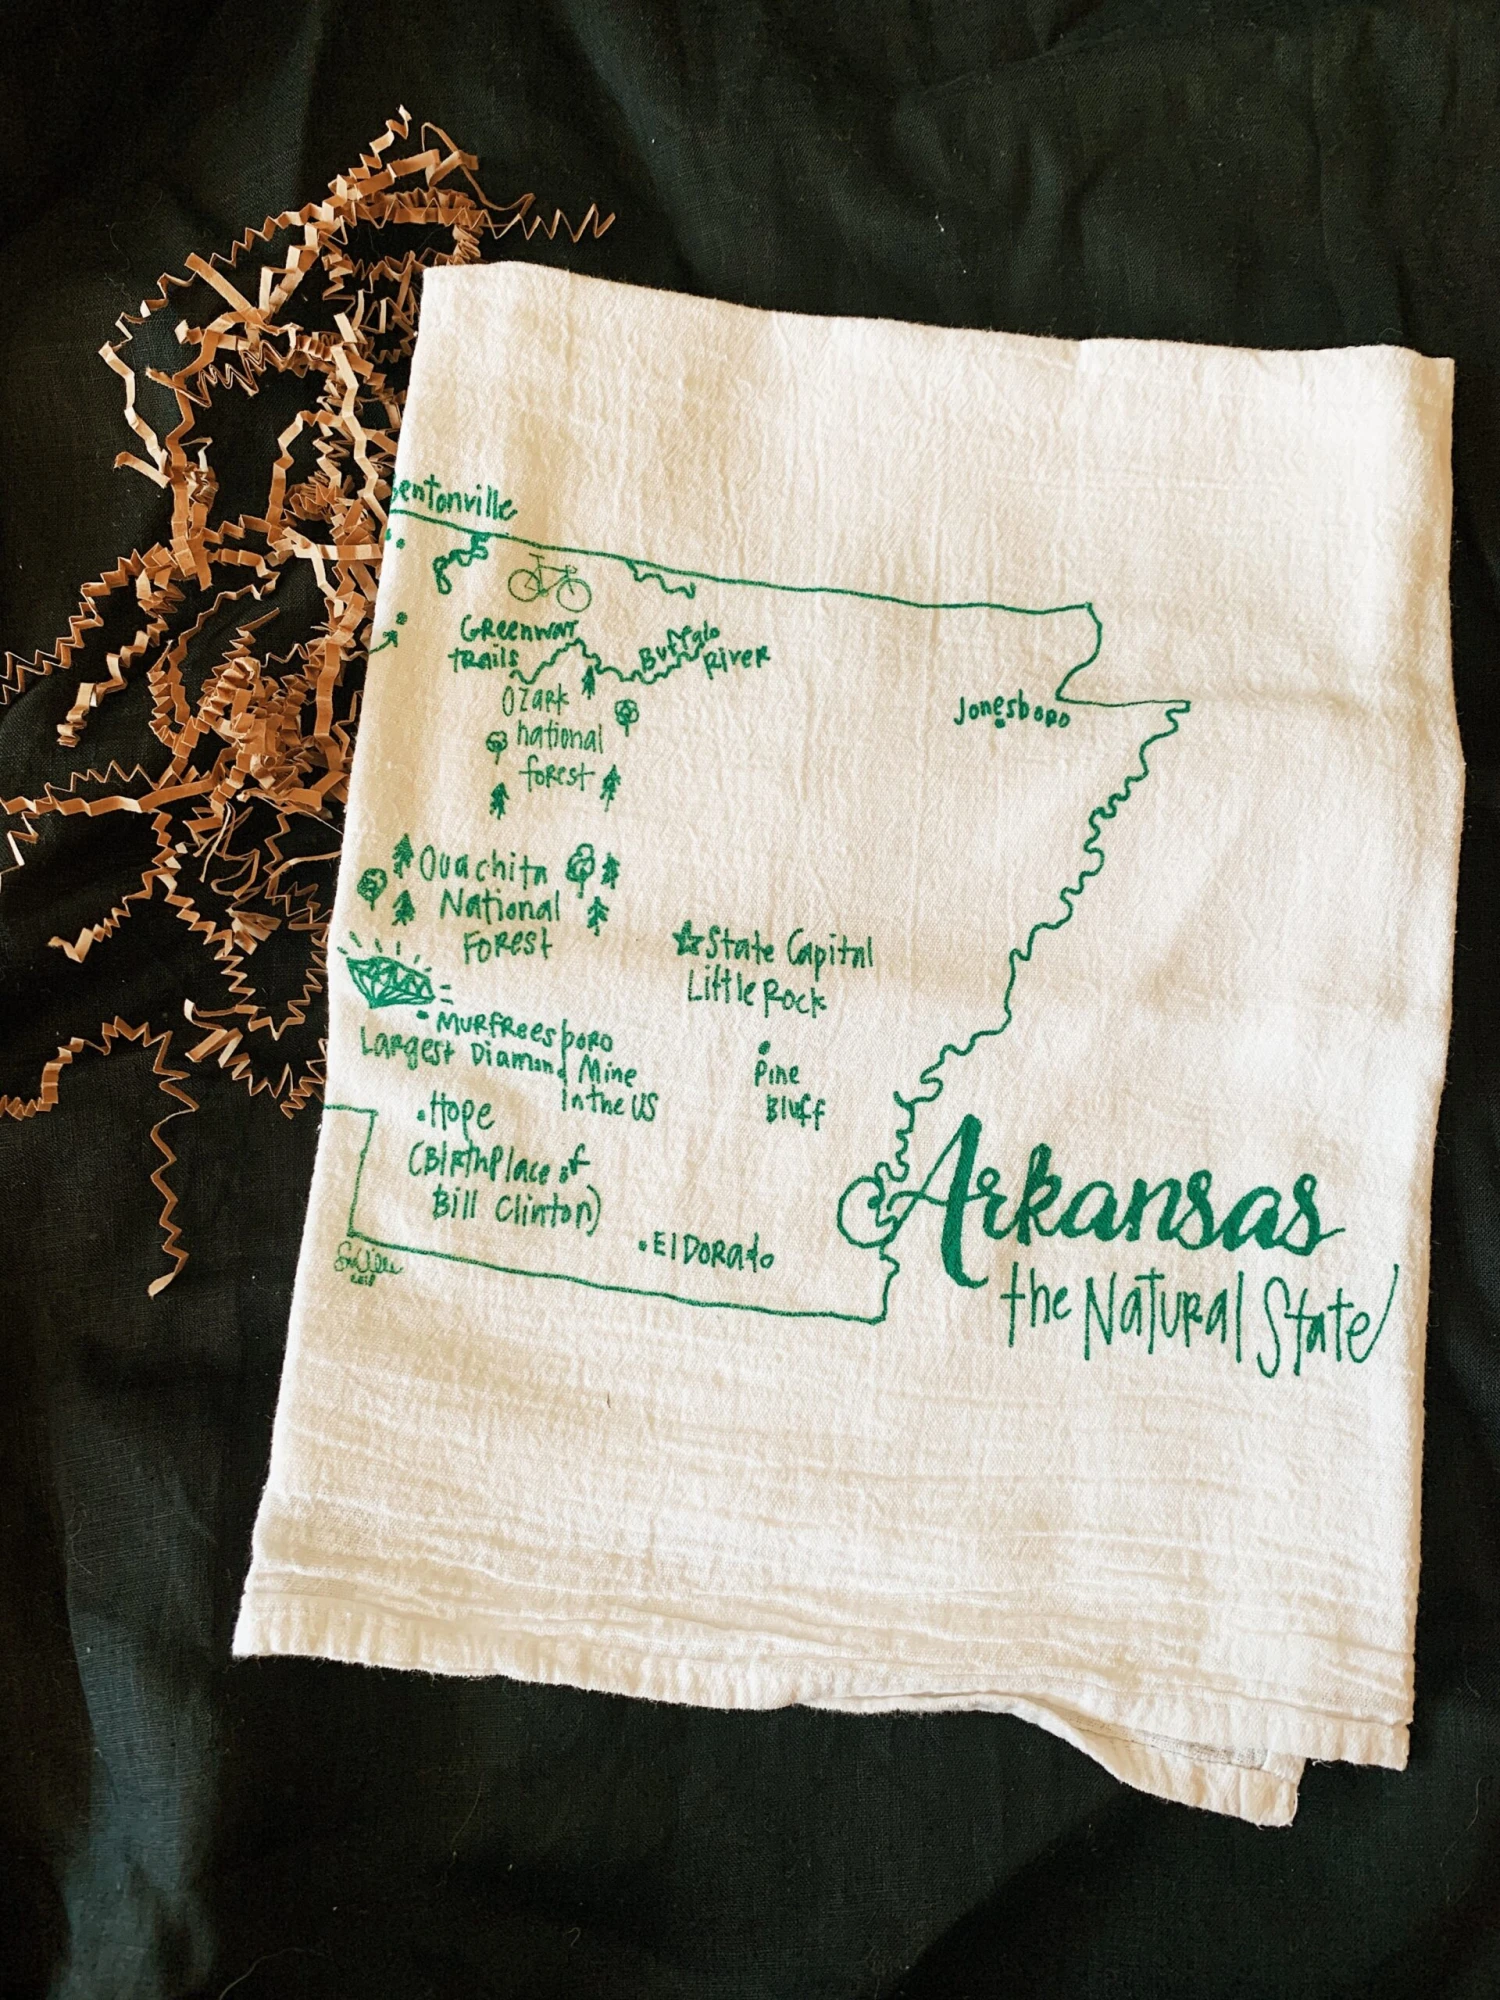 Bentonville
Greenway
trails
Buffalo
River
Ozark
national
forest
Jonesboro
Ouachita
National
Forest
State Capital
Little Rock
Murfreesboro
Largest Diamond Mine
In the US
Pine
Bluff
Hope
(Birthplace of
Bill Clinton)
El Dorado
Arkansas
the Natural State